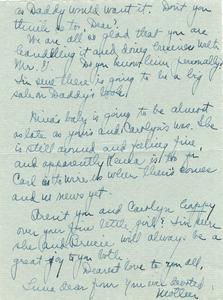 as Daddy would want it. Don't you
think so, Dear?
We are all so glad that you are
handling it and doing business with
Mr. Do you know him personally?
I'm sure there is going to be a big
sale on Daddy's book.
baby is going to be almost
as late as yours and Carolyn's was. She
is still around and feeling fine,
and apparently is to
Carl is to wire us when there's news
and no news yet.
Aren't you and Carolyn happy
over your fine little girl? I'm sure
she and Bruce will always be a
great joy to you both.
Dearest love to you all,
dear from your own devoted
Mother